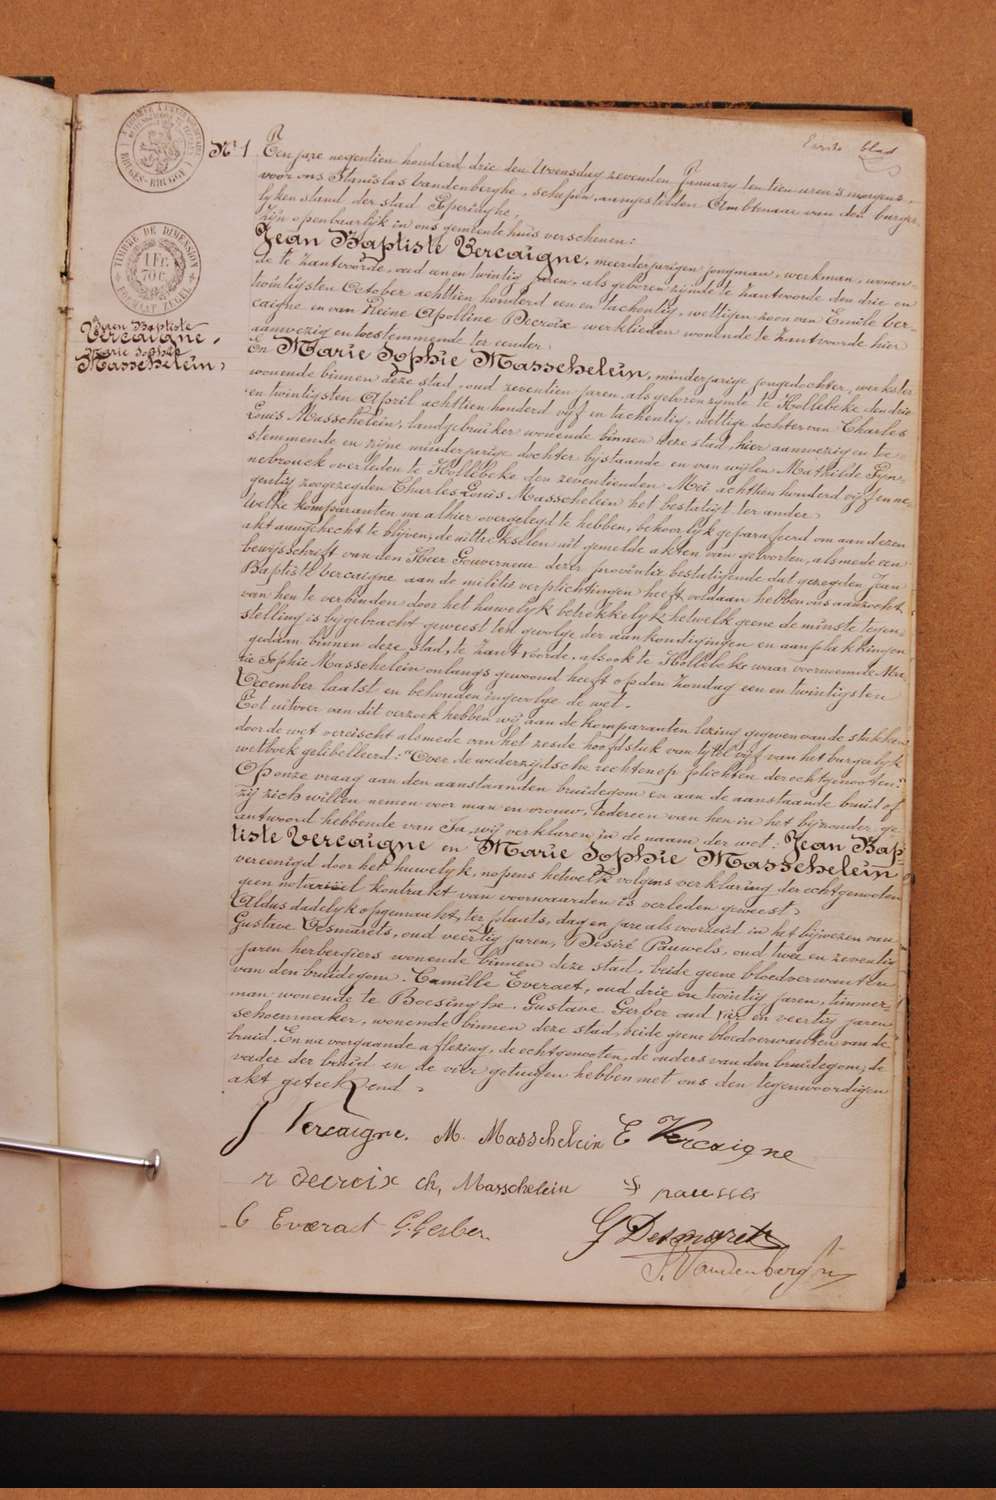 Eerste blad
BRUGES-BRUGGE
TIMBRE DE DIMENSION
1 Fr.
70 c.
FORMAAT ZEGEL
Jean Baptiste
Vercaigne,
Marie Sophie
Masschelein,
No 1
Ten jare negentien honderd drie den Woensdag zevenden January ten tien uren 's morgens,
voor ons Stanislas Vandenberghe, schepen, aangestelden Ambtenaar van den burger-
lyken stand der stad Poperinghe,
zijn openbaarlijk in ons gemeente huis verschenen:
Jean Baptiste Vercaigne, meerderjarigen jongman, werkman, wonen-
de te Zantvoorde, oud een en twintig jaren, als geboren zijnde te Zantvoorde den drie en
twintigsten October achttien honderd een en tachentig, wettigen zoon van Emile Ver-
caigne en van Reine Apolline Decroix werklieden wonende te Zantvoorde hier
aanwezig en toestemmende ter eender
En Marie Sophie Masschelein, minderjarige jongedochter, werkster
wonende binnen deze stad, oud zeventien jaren, als geboren zynde te Hollebeke den drie
en twintigsten April achttien honderd vyf en tachentig, wettige dochter van Charles
Louis Masschelein, landgebruiker wonende binnen deze stad, hier aanwezig en toe-
stemmende en zijne minderjarige dochter bystaande en van wijlen Mathilde Pyn-
nebrouck overleden te Hollebeke den zeventienden Mei achttien honderd vijf en ne-
gentig zoogezegden Charles Louis Masschelein het bestatigt ter ander
Welke komparanten na alhier overgelegd te hebben, behoorlyk geparafeerd om aan dezen
akt aangehecht te blijven, de uittrekselen uit gemelde akten van geboorten, alsmede een
bewijsschrift van den Heer Gouverneur dezer provintie bestatigende dat gezegden Jean
Baptiste Vercaigne aan de militie verplichtingen heeft voldaan hebben ons aanzocht
van hen te verbinden door het huwelyk betrekkelyk hetwelk geene de minste tegen-
stelling is bygebracht geweest ten gevolge der aankondigingen en aanplakkingen
gedaan binnen deze stad, te Zantvoorde, alsook te Hollebeke waar voornoemde Ma-
rie Sophie Masschelein onlangs gewoond heeft op den Zondag een en twintigsten
December laatst en behouden ingevolge de wet.
Tot uitvoer van dit verzoek hebben wij aan de komparanten lezing gegeven van de stukken
door de wet vereischt alsmede van het zesde hoofdstuk van tytel vijf van het burgerlyk
wetboek gelibelleerd: "Over de wederzijdsche rechten en plichten der echtgenooten."
Op onze vraag aan den aanstaanden bruidegom en aan de aanstaande bruid of
zij zich willen nemen voor man en vrouw, Iedereen van hen in het bijzonder ge-
antwoord hebbende van Ja, wij verklaren in de naam der wet: Jean Bap-
tiste Vercaigne en Marie Sophie Masschelein
vereenigd door het huwelyk, nopens hetwelk volgens verklaring der echtgenooten
geen notariëel kontrakt van voorwaarden is verleden geweest,
Aldus dadelyk opgemaakt, ter plaats, dag en jare als voorzeid in het bijwezen van
Gustave Desmarets, oud veertig jaren, Désiré Pauwels, oud twee en zeventig
jaren herbergiers wonende binnen deze stad, beide geene bloedverwanten
van den bruidegom. Camille Everaet, oud drie en twintig jaren, timmer-
man wonende te Boesinghe, Gustave Gerber oud vier en veertig jaren
schoenmaker, wonende binnen deze stad, beide geene bloedverwanten van de
bruid. En na voorgaande aflezing, de echtgenooten, de ouders van den bruidegom, de
vader der bruid en de vier getuigen hebben met ons den tegenwoordigen
akt geteekend.
J Vercaigne. M. Masschelein E Vercaigne
r decroix ch, Masschelein
C Everaet G. Gerber
G Desmarets
S. Vandenberghe